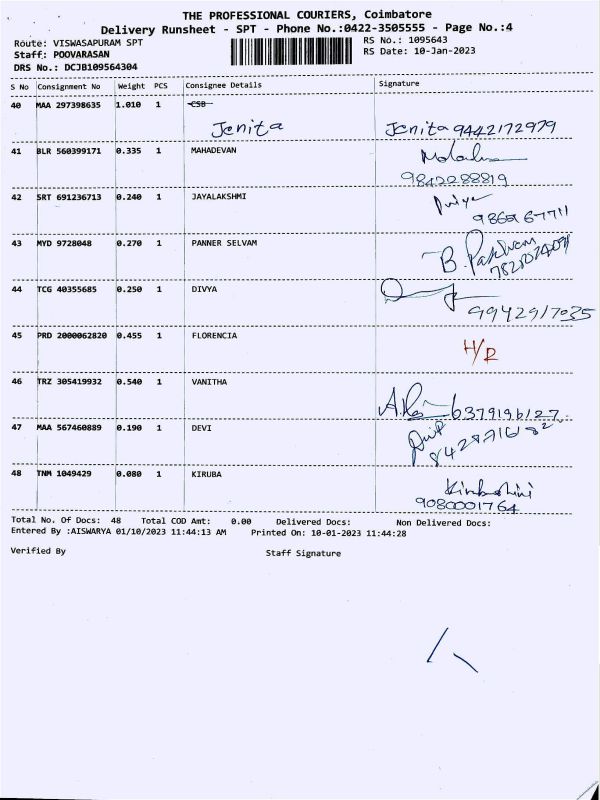 THE PROFESSIONAL COURIERS, Coimbatore
Delivery Runsheet - SPT - Phone No.:0422-3505555 - Page No.:4
Route: VISWASAPURAM SPT RS No.: 1095643
Staff: POOVARASAN RS Date: 10-Jan-2023
DRS No.: DCJB109564304
S No Consignment No Weight PCS Consignee Details Signature
40 MAA 297398635 1.010 1 CSB
Jenita Jenita 9442172979
41 BLR 560399171 0.335 1 MAHADEVAN
9842288819
42 SRT 691236713 0.240 1 JAYALAKSHMI Priya
43 MYD 9728048 0.270 1 PANNER SELVAM
B.
44 TCG 40355685 0.250 1 DIVYA
9942917035
45 PRD 2000062820 0.455 1 FLORENCIA H/R
46 TRZ 305419932 0.540 1 VANITHA
6379196127
47 MAA 567460889 0.190 1 DEVI
48 TNM 1049429 0.080 1 KIRUBA
9080001764
Total No. Of Docs: 48 Total COD Amt: 0.00 Delivered Docs: Non Delivered Docs:
Entered By :AISWARYA 01/10/2023 11:44:13 AM Printed On: 10-01-2023 11:44:28
Verified By Staff Signature